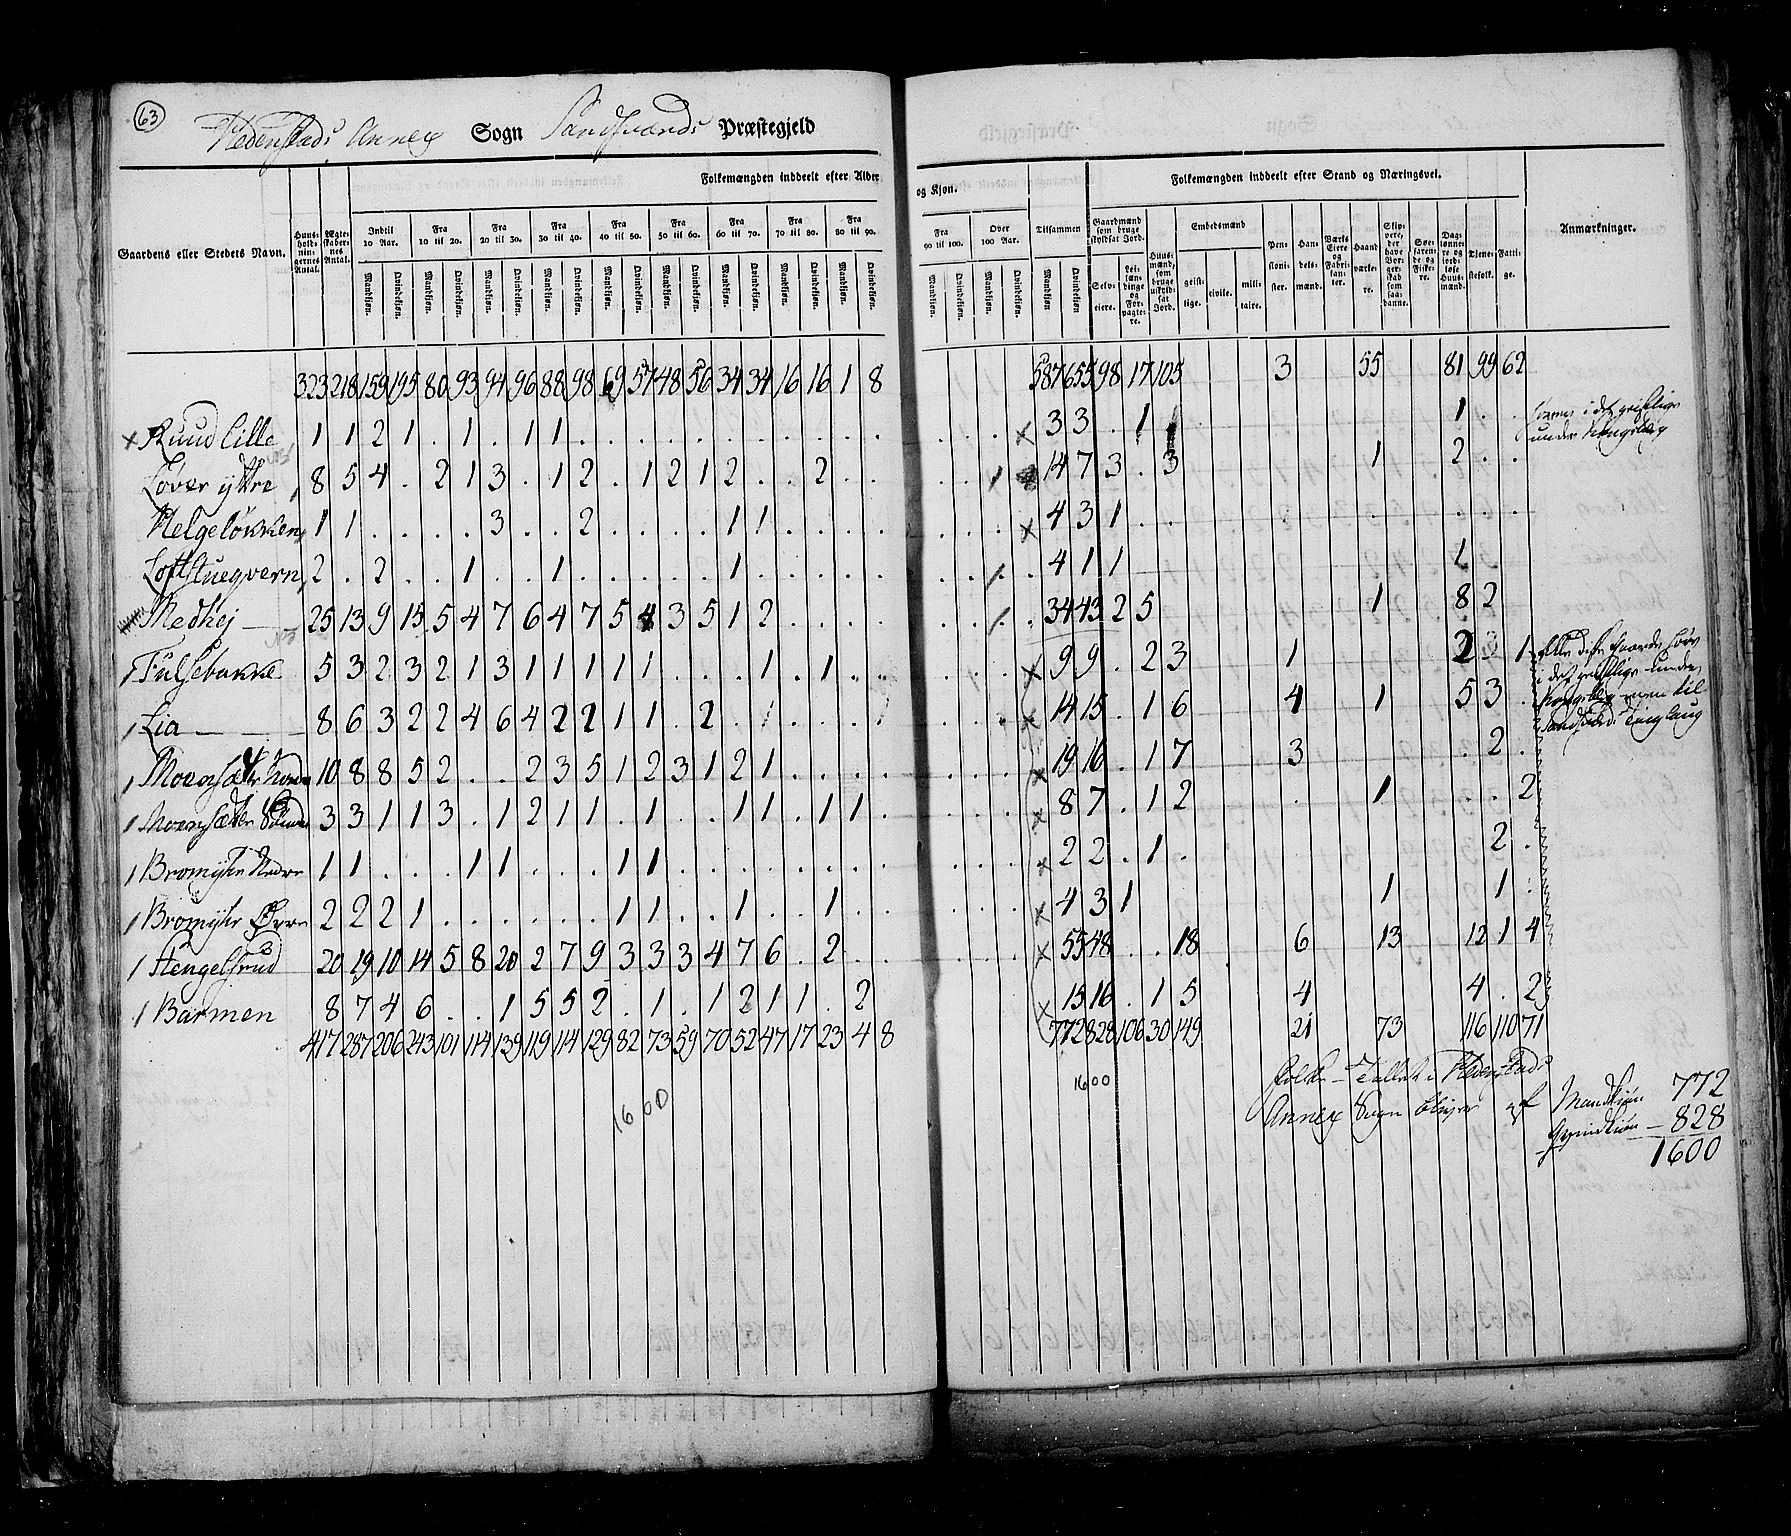 63
Hedenstads Annex Sogn Sandsværds Præstegjeld
Folkemængden inddeelt efter Alder og Kjøn.
Folkemængden inddeelt efter Stand og Næringsvei.
Gaardens eller Stedets Navn.
Huusholdningernes Antal.
Ægteskabernes Antal.
Indtil 10 Aar. Fra 10 til 20. Fra 20 til 30. Fra 30 til 40. Fra 40 til 50. Fra 50 til 60. Fra 60 til 70. Fra 70 til 80. Fra 80 til 90. Fra 90 til 100. Over 100 Aar. Tilsammen
Mandkjøn. Qvindekjøn.
Gaardmænd som bruge skyldsat Jord.
Selveiere. Leilændinge og Forpagtere.
Huusmænd, som bruge uskyldsat Jord.
Embedsmænd
geistlige. civile. militaire.
Pensionister. Handelsmænd. Værks Eiere og Fabrikanter. Haandværkere. Skippere, der have Borgerskab som saadanne. Søefarende og Fiskere. Dagslønnere og jordløse Huusmænd. Tjenestefolk. Fattige.
Anmærkninger.
323 218 159 195 80 93 94 96 88 98 69 57 48 56 34 34 16 16 1 8 587 655 98 17 105 3 55 81 99 62
Ruud Lille 1 1 2 1 . 1 . 1 1 . . . 3 3 . 1 1 . .
Løver ÿttre 8 5 4 . 2 1 3 . 1 2 . 1 2 1 2 . . 2 . . 14 7 3 . 3 1 2 . .
Helgeløkken 1 1 . . . . 3 . . 2 . . . . 1 1 . . . . 4 3 1 . .
Loftstuegvern 2 . 2 . . 1 . . 1 . . . . . 1 . . . . . 4 1 1
Medhej 25 13 9 15 5 4 7 6 4 7 5 4 3 5 1 2 . . . . 34 43 2 5 1 8 2
Fulsebakke 5 3 2 3 2 1 3 1 1 1 1 1 . . . 1 . 1 . . 9 9 . 2 3 1 2 3 1
Lia 8 6 3 2 2 4 6 4 2 2 1 1 . 2 . 1 14 15 . 1 6 4 1 5 3 .
10 8 8 5 2 . . 2 3 5 1 2 3 1 2 1 . . . . 19 16 . 1 7 3 . 2 .
3 3 1 1 3 . 1 2 1 1 . 1 . . 1 1 . 1 1 . 8 7 . 1 2 . 1 . . 2
1 1 . . . 1 1 . . . 1 1 . . . 2 2 . 1 . 2 .
2 2 2 1 . . . . . . 1 1 . . 1 . . 1 . . 4 3 1 1 1 .
Hengelsrud 20 19 10 14 5 8 20 2 7 9 3 3 3 4 7 6 . 2 . . 55 48 . . 18 6 13 12 1 4
Barmen 8 7 4 6 . . 1 5 5 2 . 1 . 1 2 1 1 . 2 15 16 . 1 5 4 4 . 2
417 287 206 243 101 114 139 119 114 129 82 73 59 70 52 47 17 23 4 8 772 828 106 30 149 21 73 116 110 71
1600
1600
Folke-Tallet i Hedenstads
Annex Sogn bliver af Mandkiøn 772
Qvindkiøn - 828
1600